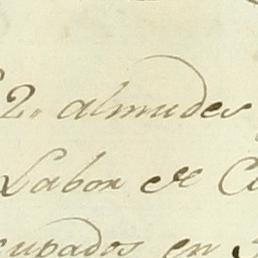 2. almudes
Labor de
cupados en